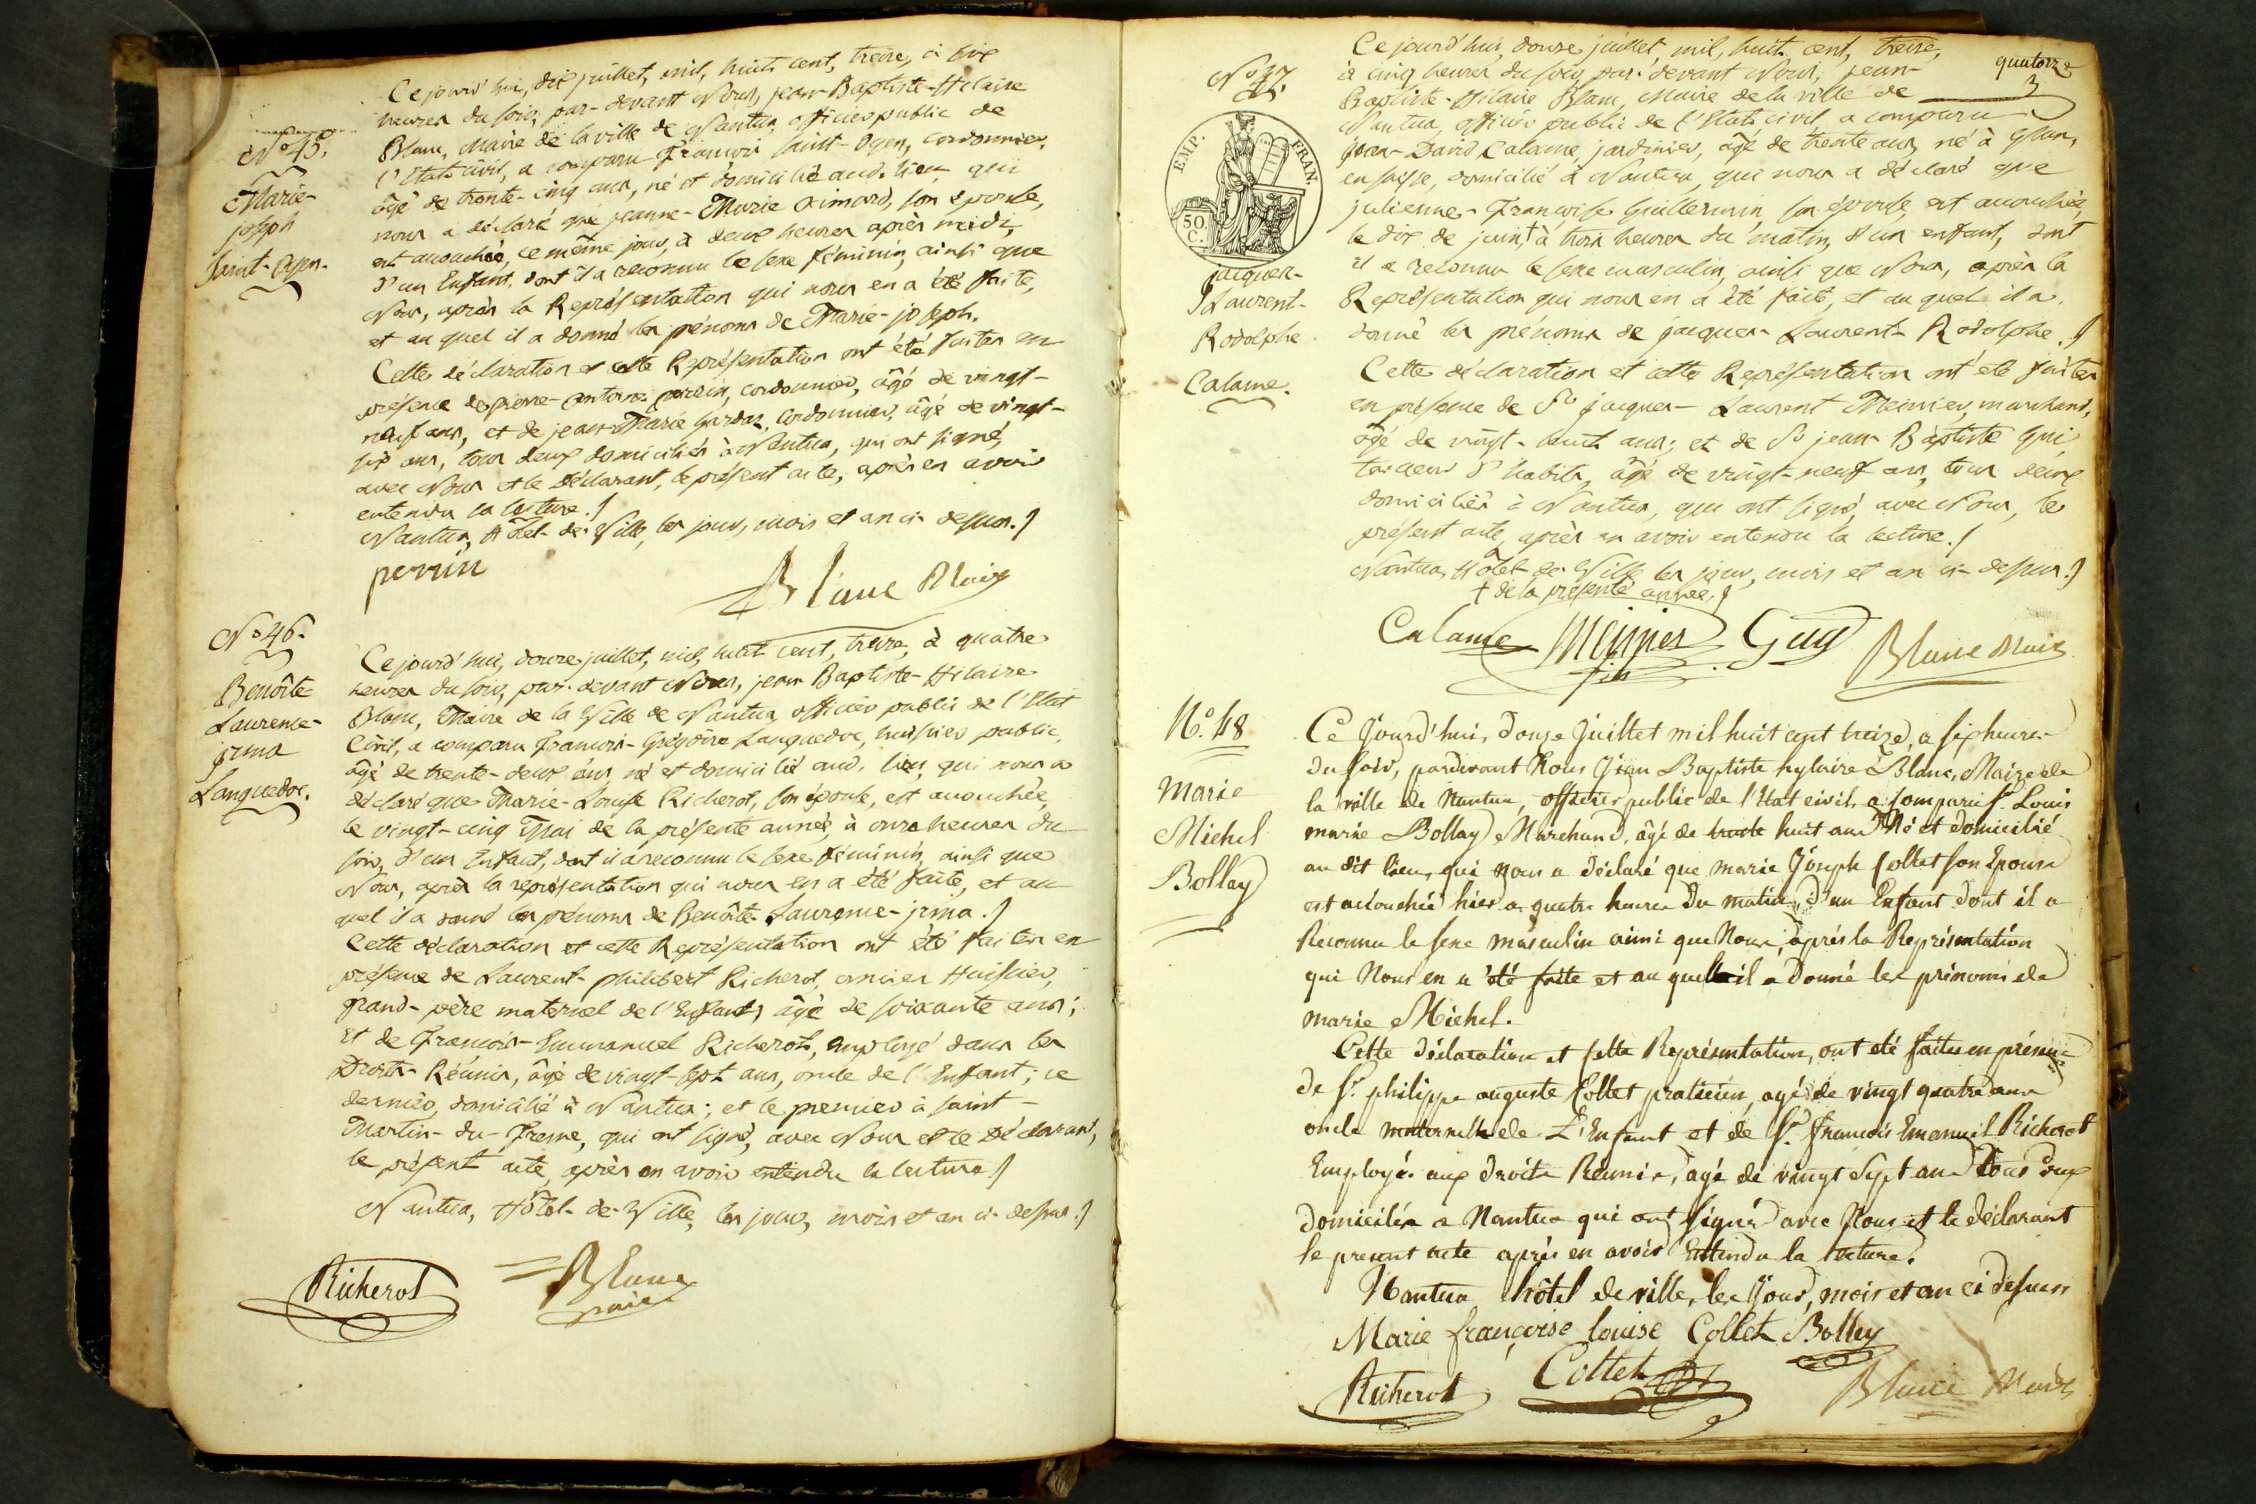 N.o 45.
Marie-
joseph
Saint-Oyen.
Ce jourd'hui, dix juillet, mil, huit cent, treize, à six
heures du soir, par-devant Nous, jean-Baptiste-Hilaire
Blanc, Maire de la ville de Nantua, officier public de
l'Etat civil, a comparu François Saint-Oyen, cordonnier,
âgé de trente-cinq ans, né et domicilié aud. lieu, qui
nous a déclaré que jeanne-Marie Aimard, son épouse,
est accouchée, ce même jour, à deux heures après midi,
d'un Enfant, dont il a reconnu le sexe féminin, ainsi que
Nous, après la Représentation qui nous en a été faite,
et au quel il a donné les prénoms de Marie-joseph.
Cette déclaration et cette Représentation ont été faites en
présence de pierre-antoine perrin, cordonnier, âgé de vingt-
neuf ans, et de jean-Marie cordonnier, âgé de vingt-
six ans, tous deux domiciliés à Nantua, qui ont signé,
avec Nous et le Déclarant, le présent acte, après en avoir
entendu la lecture./
Nantua, Hôtel-de-Ville, les jour, mois et an ci-dessus./
perrin
Blanc Maire
N.o 46.
Benoîte-
Laurence-
jrma
Languedoc.
Ce jourd'hui, douze juillet, mil, huit cent, treize, à quatre
heures du soir, par-devant Nous, jean Baptiste-Hilaire
Blanc, Maire de la Ville de Nantua, officier public de l'Etat
Civil, a comparu François-Grégoire Languedoc, huissier public,
âgé de trente-deux ans, né et domicilié aud. lieu, qui nous a
déclaré que Marie-Louise Richerot, son épouse, est accouchée,
le vingt-cinq Mai de la présente année, à onze heures du
soir, d'un Enfant, dont il a reconnu le sexe féminin, ainsi que
Nous, après la représentation qui nous en a été faite, et au
quel il a donné les prénoms de Benôite-Laurence-jrma./
Cette déclaration et cette Représentation ont été faites en
présence de Laurent-philibert Richerot, ancien Huissier,
grand-père maternel de l'Enfant, âgé de soixante ans;
Et de François-Emmanuel Richerot, employé dans les
Droits-Réunis, âgé de vingt-sept ans, oncle de l'Enfant; ce
dernier, domicilié à Nantua; et le premier à Saint-
Martin-du-Fresne, qui ont signé, avec Nous et le Déclarant,
le présent acte, après en avoir entendu la lecture./
Nantua, Hôtel-de-Ville, les jour, mois et an ci-dessus./
Richerot
Blanc
maire
quatorze
N.o 47.
EMP. FRAN.
50.
C.
jacques-
Laurent-
Rodolphe
Calame.
Ce jourd'hui, douze juillet, mil, huit cent, treize,
à cinq heures du soir, par-devant Nous, jean-
Baptiste-Hilaire Blanc, Maire de la ville de
Nantua, officier public de l'Etat civil a comparu
jean-David Calame, jardinier, âgé de trente ans, né à
en suisse, domicilié à Nantua, qui nous a déclaré que
julienne-Françoise Guillermin, son épouse, est accouchée,
le dix de juin,† à trois heures du matin, d'un enfant, dont
il a reconnu le sexe masculin, ainsi que Nous, après la
Représentation qui nous en a été faite, et au quel il a
donné les prénoms de jacques-Laurent-Rodolphe./
Cette déclaration et cette Représentation ont été faites
en présence de Sr jacques-Laurent Meinier, marchand,
âgé de vingt-huit ans; et de Sr jean-Baptiste Gui,
tailleur d'habits, âgé de vingt-neuf ans, tous deux
domiciliés à Nantua, qui ont signé, avec Nous, le
présent acte, après en avoir entendu la lecture./
Nantua, Hôtel-de-Ville, les jour, mois et an ci-dessus./
† de la présente année./
Calame Meynier Guy Blanc Maire
fils
N.o 48
Marie
Michel
Bollay
Ce Jourd'hui, douze Juillet mil huit cent treize, a six heures
du soir, pardevant Nous Jean Baptiste hylaire Blanc, Maire de
la ville de Nantua, officier public de l'Etat civil, a comparu Sr. Louis
marie Bollay Marchand, âgé de trente huit ans Né et domicilié
au dit lieu, qui nous a déclaré que marie Joseph Collet son Epouse
est accouchée hier a quatre heures du matin, d'un Enfant dont il a
Reconnu le sexe masculin ainsi que Nous, après la Représentation
qui Nous en a été faite et au quel il a donné les prénoms de
marie Michel.
Cette déclaration et cette Représentation, ont été faites en présence
de Sr. philippe auguste Collet praticien, agé de vingt quatre ans
oncle maternelle de L'Enfant et de Sr. francois Emanuel Richerot
Employé aux droits Réunis, agé de vingt Sept ans tous deux
domiciliés a Nantua qui ont signé avec Nous et le déclarant
le present acte après en avoir Entendu la lecture.
Nantua hôtel de ville, les Jour, mois et an ci dessus
Marie françoise louise Collet Bolley
Richerot Collet Blanc Maire